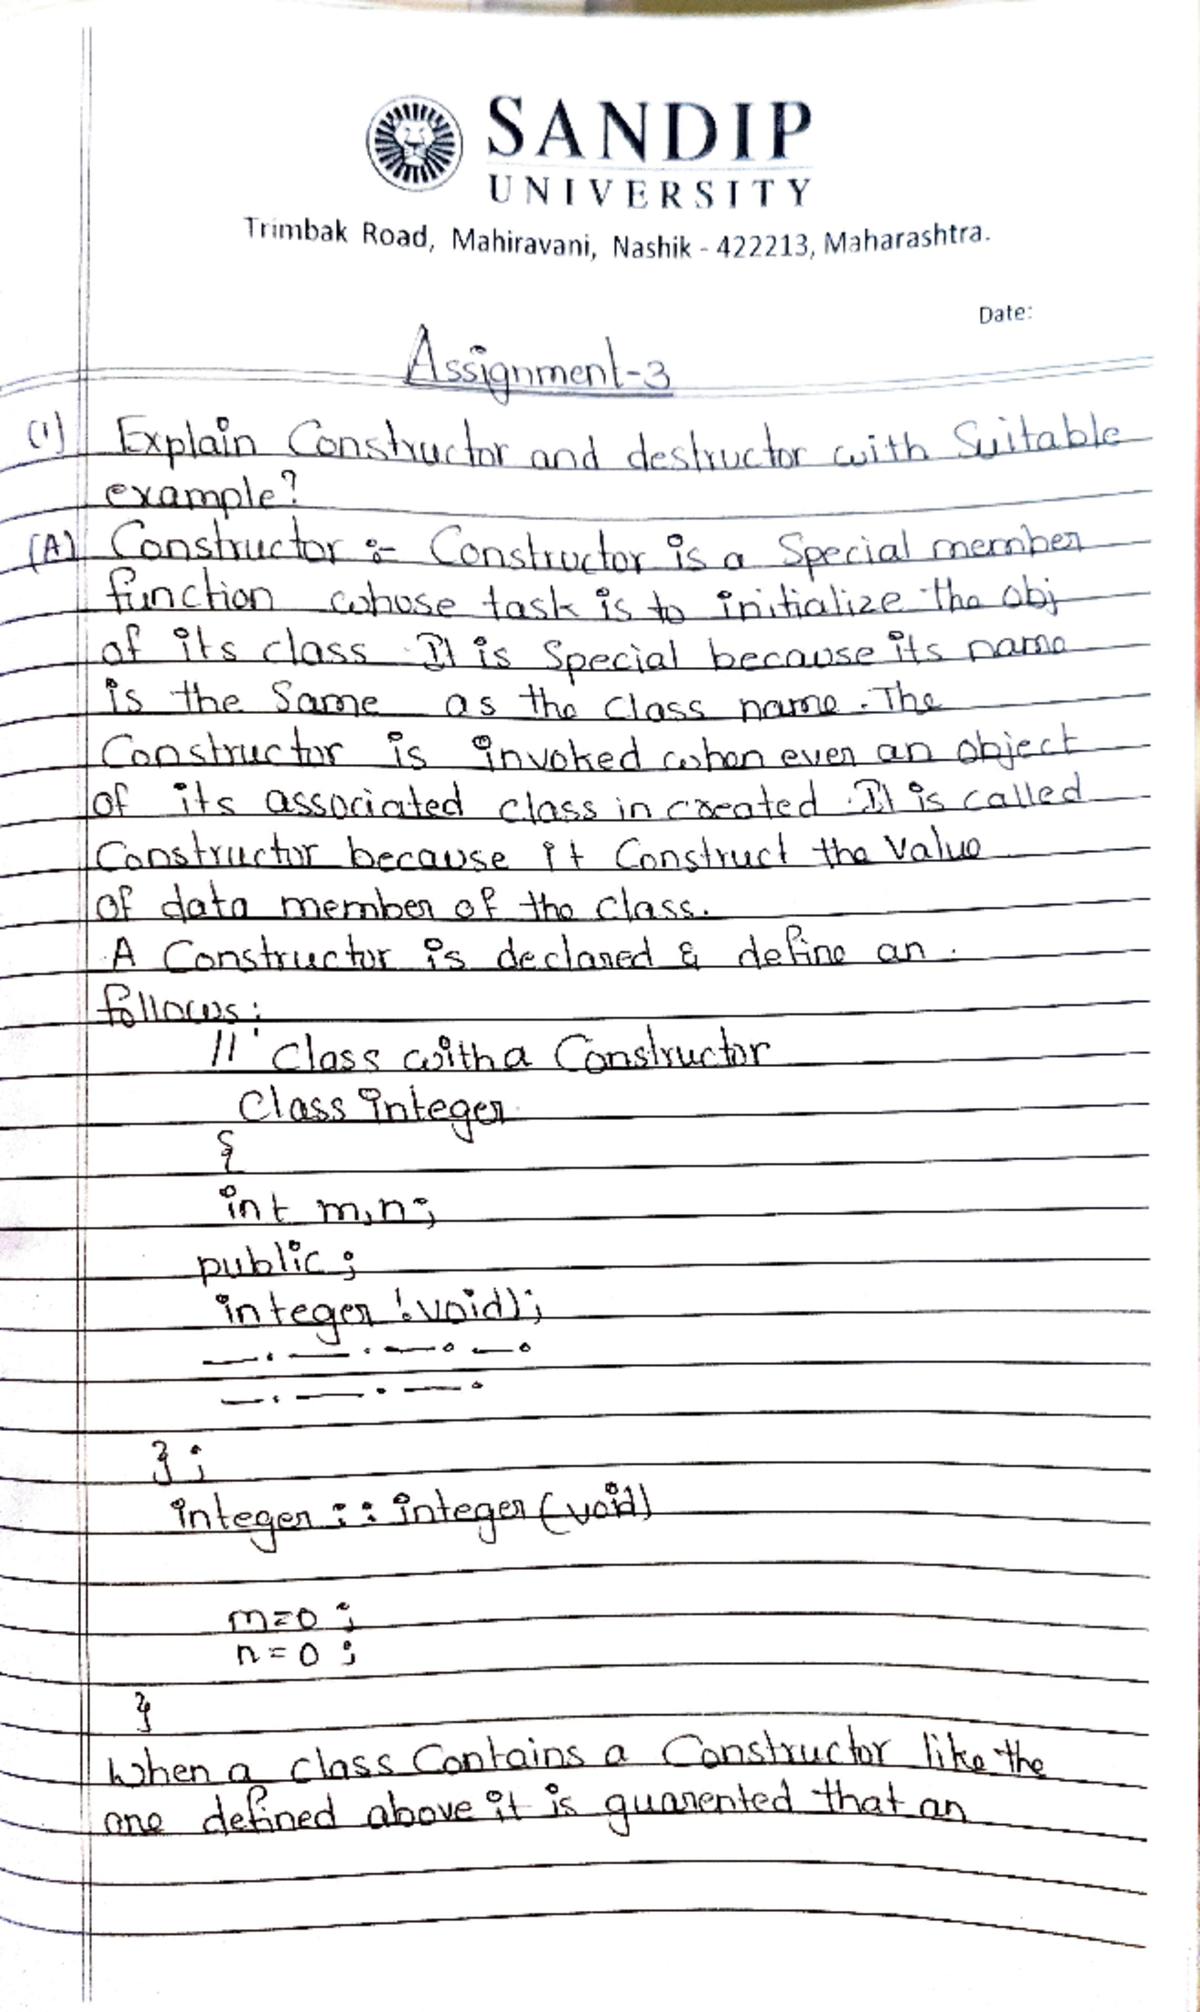 SANDIP
UNIVERSITY
Trimbak Road, Mahiravani, Nashik - 422213, Maharashtra.
Date:
Assignment-3
(1) Explain Constructor and destructor with Suitable
example?
(A) Constructor :- Constructor is a Special member
function whose task is to initialize the obj
of its class. It is Special because its name
is the Same as the class name. The
Constructor is invoked when ever an object
of its associated class in created. It is called
Constructor because it Construct the Value
of data member of the class.
A Constructor is declared & define an
follows:
// Class with a Constructor
Class integer
{
int m,n;
public;
integer !void);
};
integer :: integer (void)
m=0 ;
n=0 ;
}
When a class Contains a Constructor like the
one defined above it is guarented that an